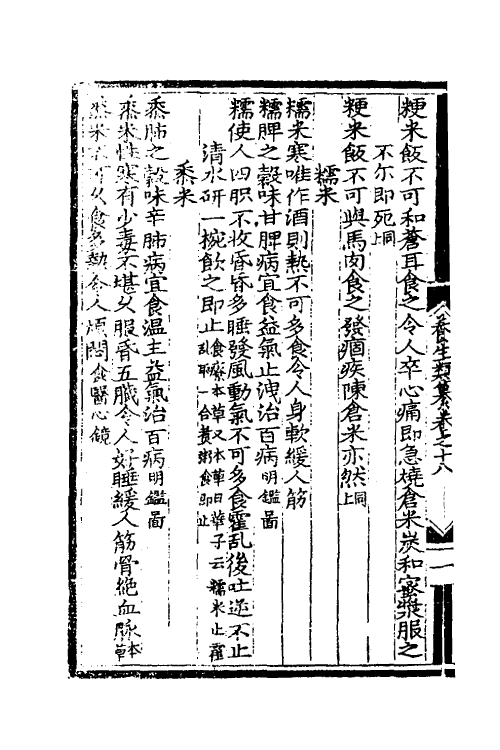 粳米飯不可和蒼耳食之令人卒心痛即急燒倉米炭和蜜漿服之
不尔即死同上
粳米飯不可與馬肉食之發痼疾陳倉米亦然同上
糯米
糯米寒唯作酒則熱不可多食令人身軟緩人筋
糯脾之穀味甘脾病宜食益氣止洩治百病明鑑圖
糯使人四肢不收昏昏多睡發風動氣不可多食霍亂後吐逆不止
清水研一椀飲之即止食療本草又本草日華子云糯米止霍亂取一合煑粥食即止
黍米
黍肺之穀味辛肺病宜食温主益氣治百病明鑑圖
黍米性寒有少毒不堪乆服昏五臟令人好睡緩人筋骨絶血脉本草
黍米不可乆食多熱令人煩悶食醫心鏡
養生類纂卷之十八
一